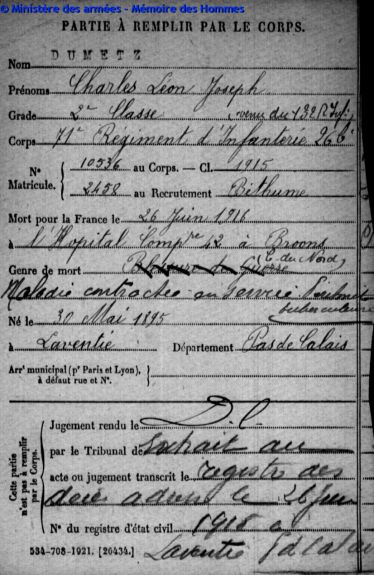 © Ministère des armées - Mémoire des Hommes
PARTIE À REMPLIR PAR LE CORPS.
Nom DUMETZ
Prénoms Charles Léon Joseph
Grade 2e Classe venu du 132 R Inf.
Corps 71e Régiment d'Infanterie
N° Matricule. 10536 au Corps. — Cl. 1915
2458 au Recrutement Béthune
Mort pour la France le 26 Juin 1916
à l'Hôpital Compre 42 à Broons
(C. du Nord)
Genre de mort Blessures de Guerre
Maladie contractée au Service
tuberculeuse
Né le 30 Mai 1895
à Laventie Département Pas de Calais
Arrt municipal (pr Paris et Lyon), à défaut rue et N°.
Cette partie n'est pas à remplir par le Corps.
Jugement rendu le D.C.
par le Tribunal de
acte ou jugement transcrit le registre des
décès adressé le 26
N° du registre d'état civil 1916 a
534-708-1921. [26434.] Laventie